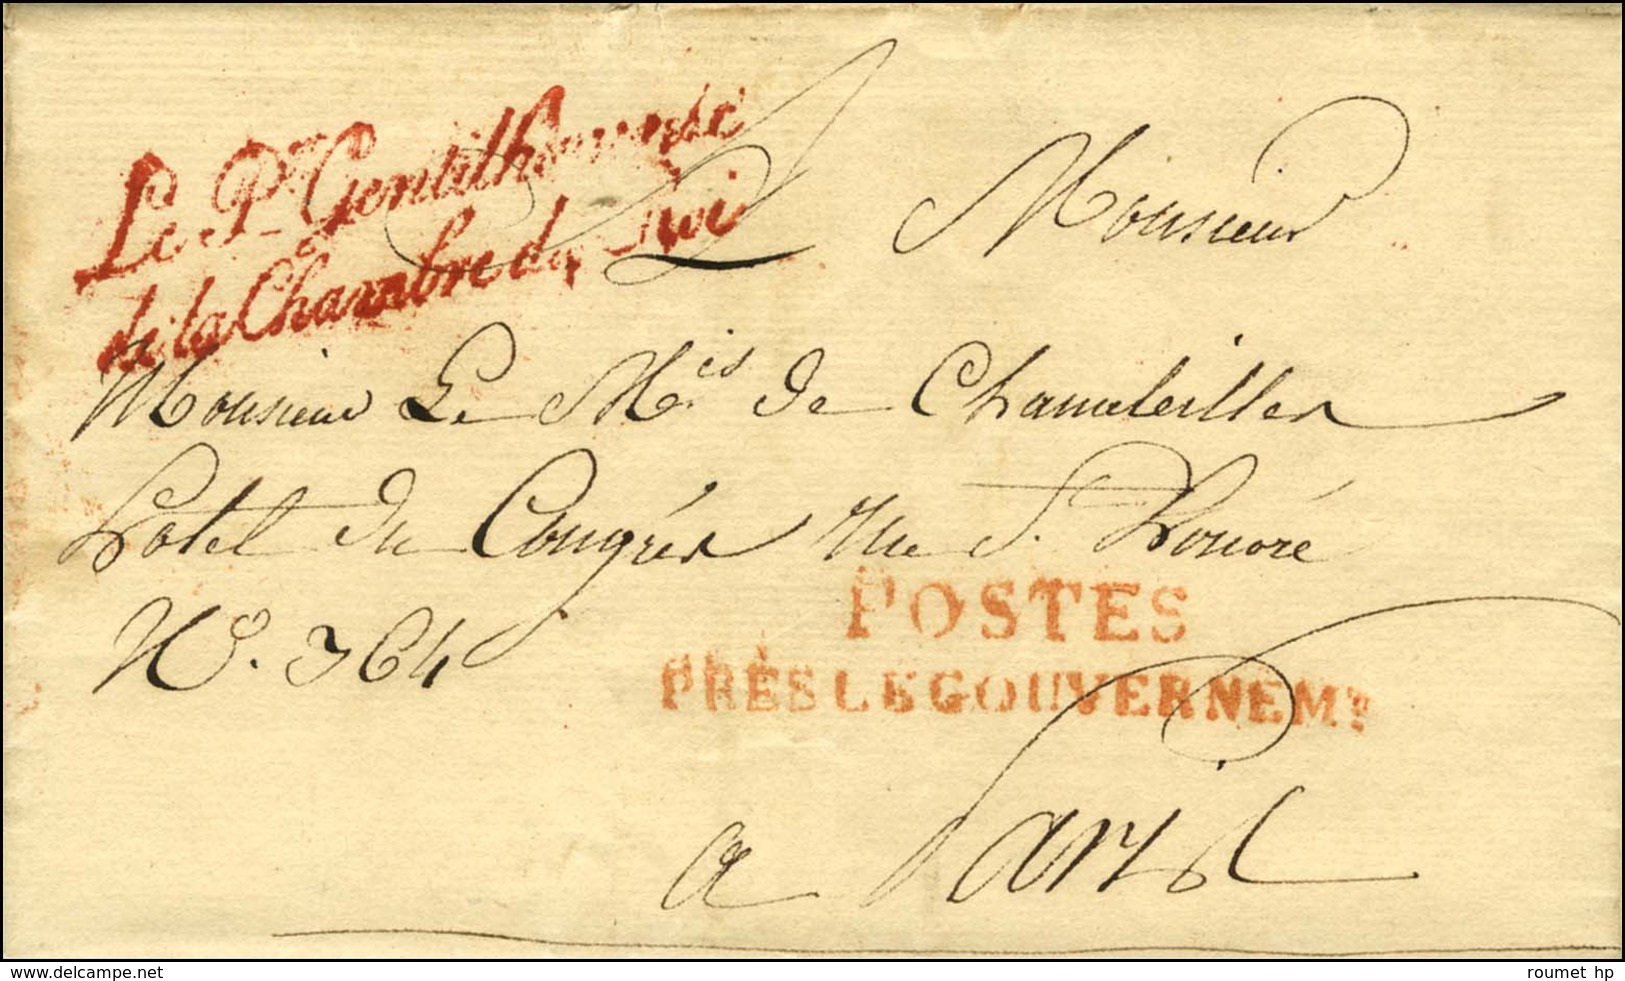 Le Pr. Gentilhomme
de la Chambre du Roi
2
Monsieur
Monsieur Le Mis de
hotel du Congrés rue St. honoré
No. 364
POSTES
PRÈS LE GOUVERNEMT
a Paris
delcampe.net
roumet hp